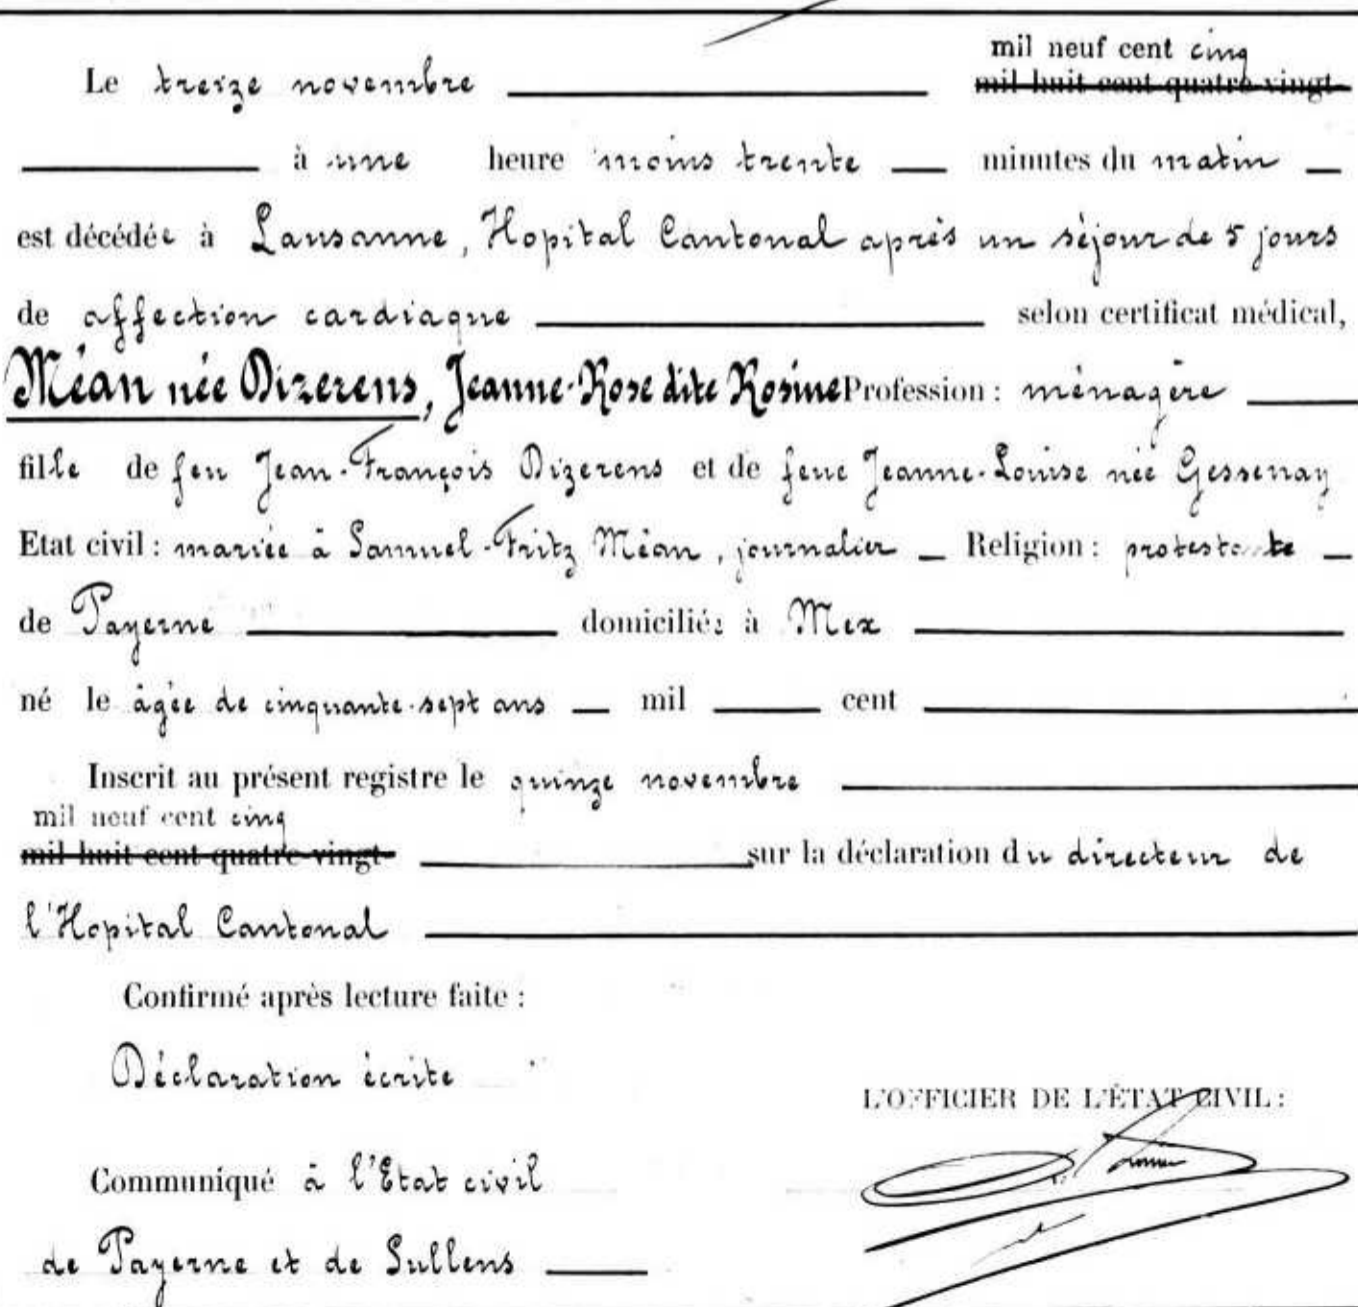 mil neuf cent cinq
Le treize novembre mil huit cent quatre-vingt-
à une heure moins trente minutes du matin
est décédée à Lausanne, Hopital Cantonal après un séjour de 5 jours
de affection cardiaque selon certificat médical,
Méan née Dizerens, Jeanne-Rose dite Rosine Profession : ménagère
fille de feu Jean-François Dizerens et de feue Jeanne-Louise née Gessenay
Etat civil : mariée à Samuel-Fritz Méan, journalier Religion : protestante
de Payerne domiciliée à Mex
né le âgée de cinquante-sept ans mil cent
Inscrit au présent registre le quinze novembre
mil neuf cent cinq
mil huit cent quatre-vingt- sur la déclaration du directeur de
l'Hopital Cantonal
Confirmé après lecture faite :
Déclaration écrite
L'OFFICIER DE L'ÉTAT CIVIL :
Communiqué à l'Etat civil
de Payerne et de Sullens